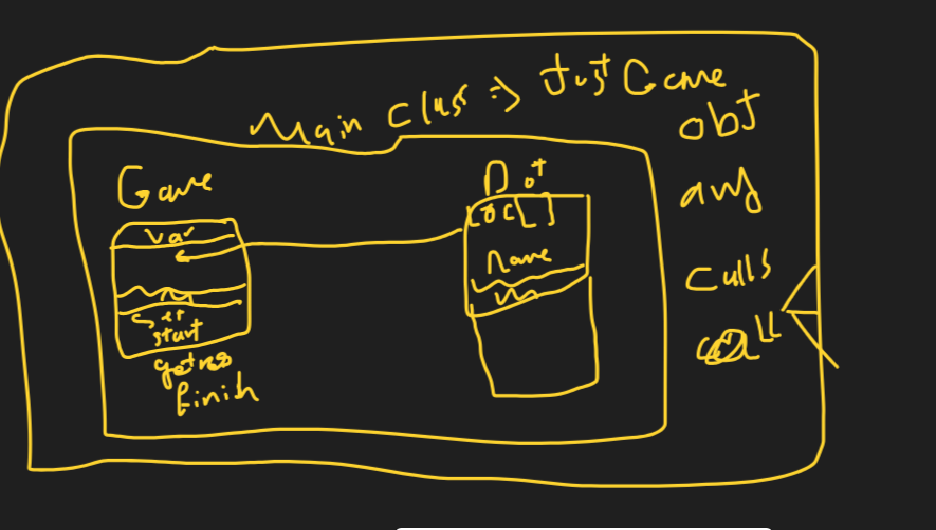 Main Class => Just Game
obj
and
calls
all
Game
var
m
set
start
getres
finish
Dot
Loc[ ]
Name
m